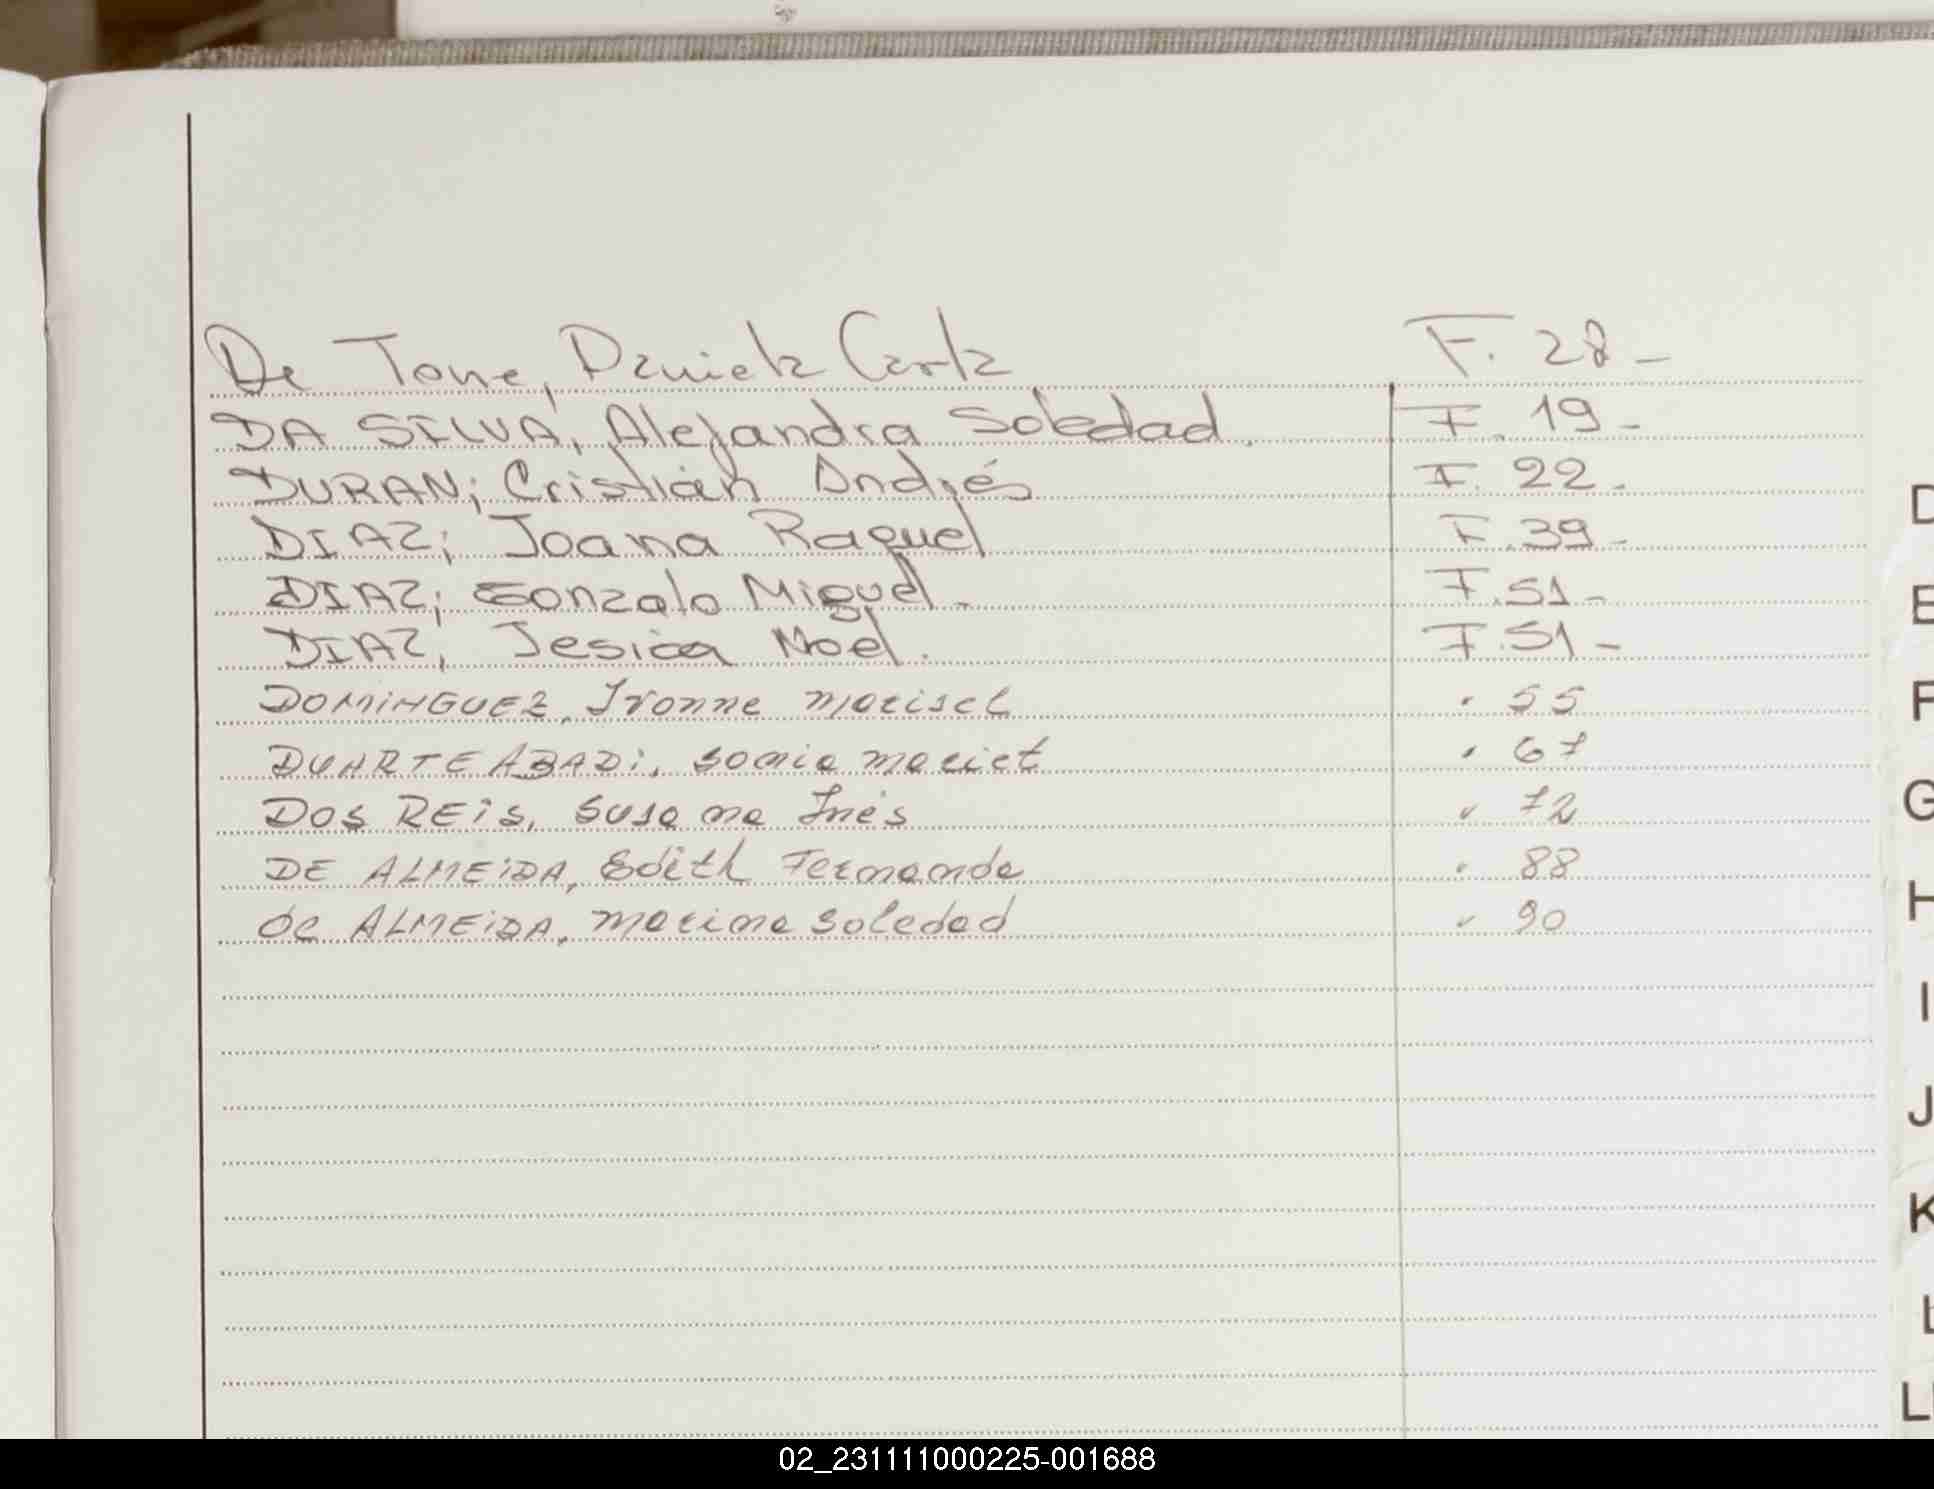 De Torre, Daniela Carla F. 28 -
DA SILVA, Alejandra Soledad. F. 19 -
DURAN; Cristián Andrés F. 22 -
DIAZ; Joana Raquel F. 39 -
DIAZ; Gonzalo Miguel - F. 51 -
DIAZ, Jesica Noel. F. 51 -
DOMINGUEZ, Ivonne Marisel " 55
DUARTE ABADI, Sonia Mariet " 67
DOS REIS, Susana Inés " 72
DE ALMEIDA, Edith Fernanda " 88
DE ALMEIDA, Marina Soledad " 90
D
E
F
G
H
I
J
K
L
LL
02_231111000225-001688